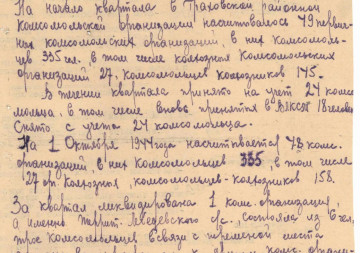 На начало квартала в Граховской районной
комсомольской организации насчитывалось 49 первич-
ных комсомольских организаций, в них комсомоль-
цев 335 чел. в том числе колхозных комсомольских
организаций 27, комсомольцев колхозников 145.
В течении квартала принято на учет 24 комсо
мольца, в том числе вновь принятся в ВЛКСМ 18 человек
Снято с учета 24 комсомольца.
На 1 Октября 1944 года насчитывается 48 комс.
организаций, в них комсомольцев 335, в том числе
27 орг. колхозных, комсомольцев-колхозников 158.
За квартал ликвидирована 1 комс. организация,
а именно террит. Лебедевского с/с, состояла из 6 чел.
трое комсомольцев в связи с переменой места